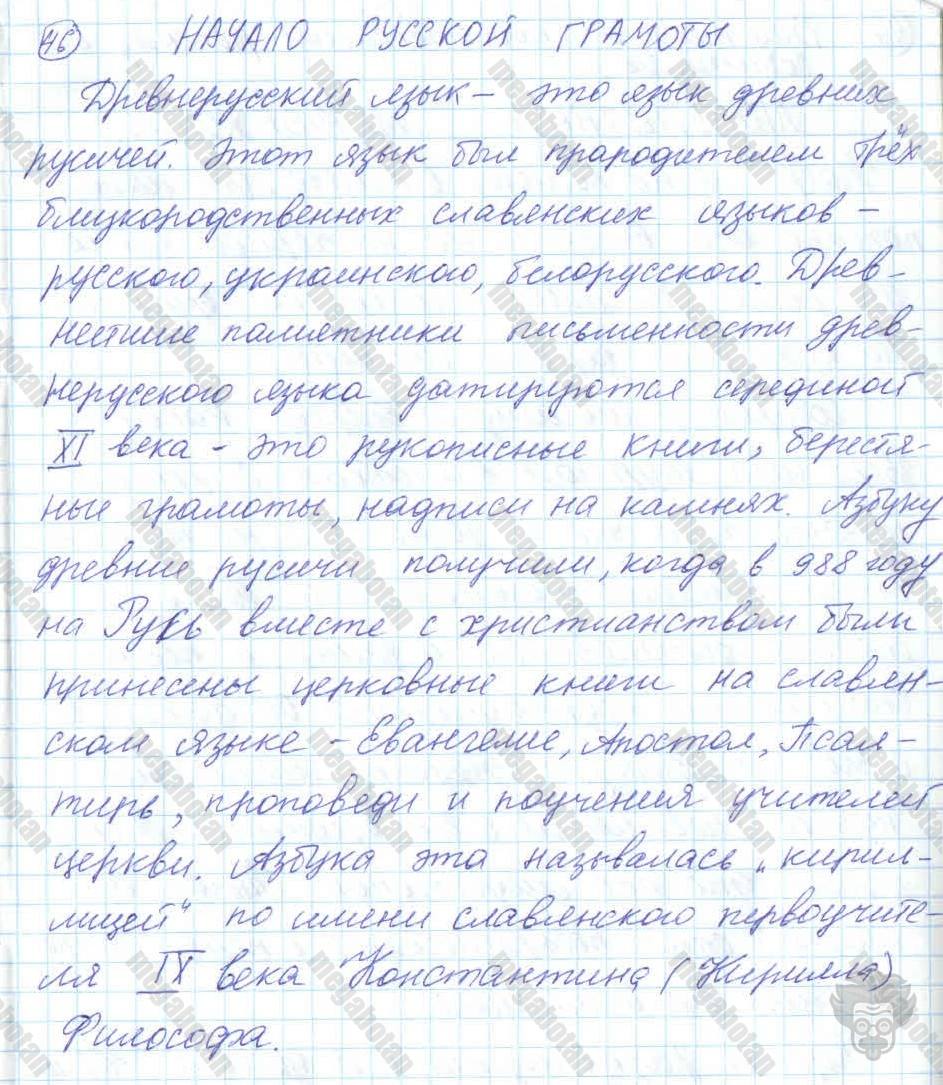 46 НАЧАЛО РУССКОЙ ГРАМОТЫ
Древнерусский язык – это язык древних
русичей. Этот язык был прародителем трёх
близкородственных славянских языков –
русского, украинского, белорусского. Древ-
нейшие памятники письменности древ-
нерусского языка датируются серединой
XI века – это рукописные книги, берестя-
ные грамоты, надписи на камнях. Азбуку
древние русичи получили, когда в 988 году
на Русь вместе с христианством были
принесены церковные книги на славян-
ском языке – Евангелие, Апостол, Псал-
тирь, проповеди и поучения учителей
церкви. Азбука эта называлась „кирил-
лицей“ по имени славянского первоучите-
ля IX века Константина (Кирилла)
Философа.
megabotan